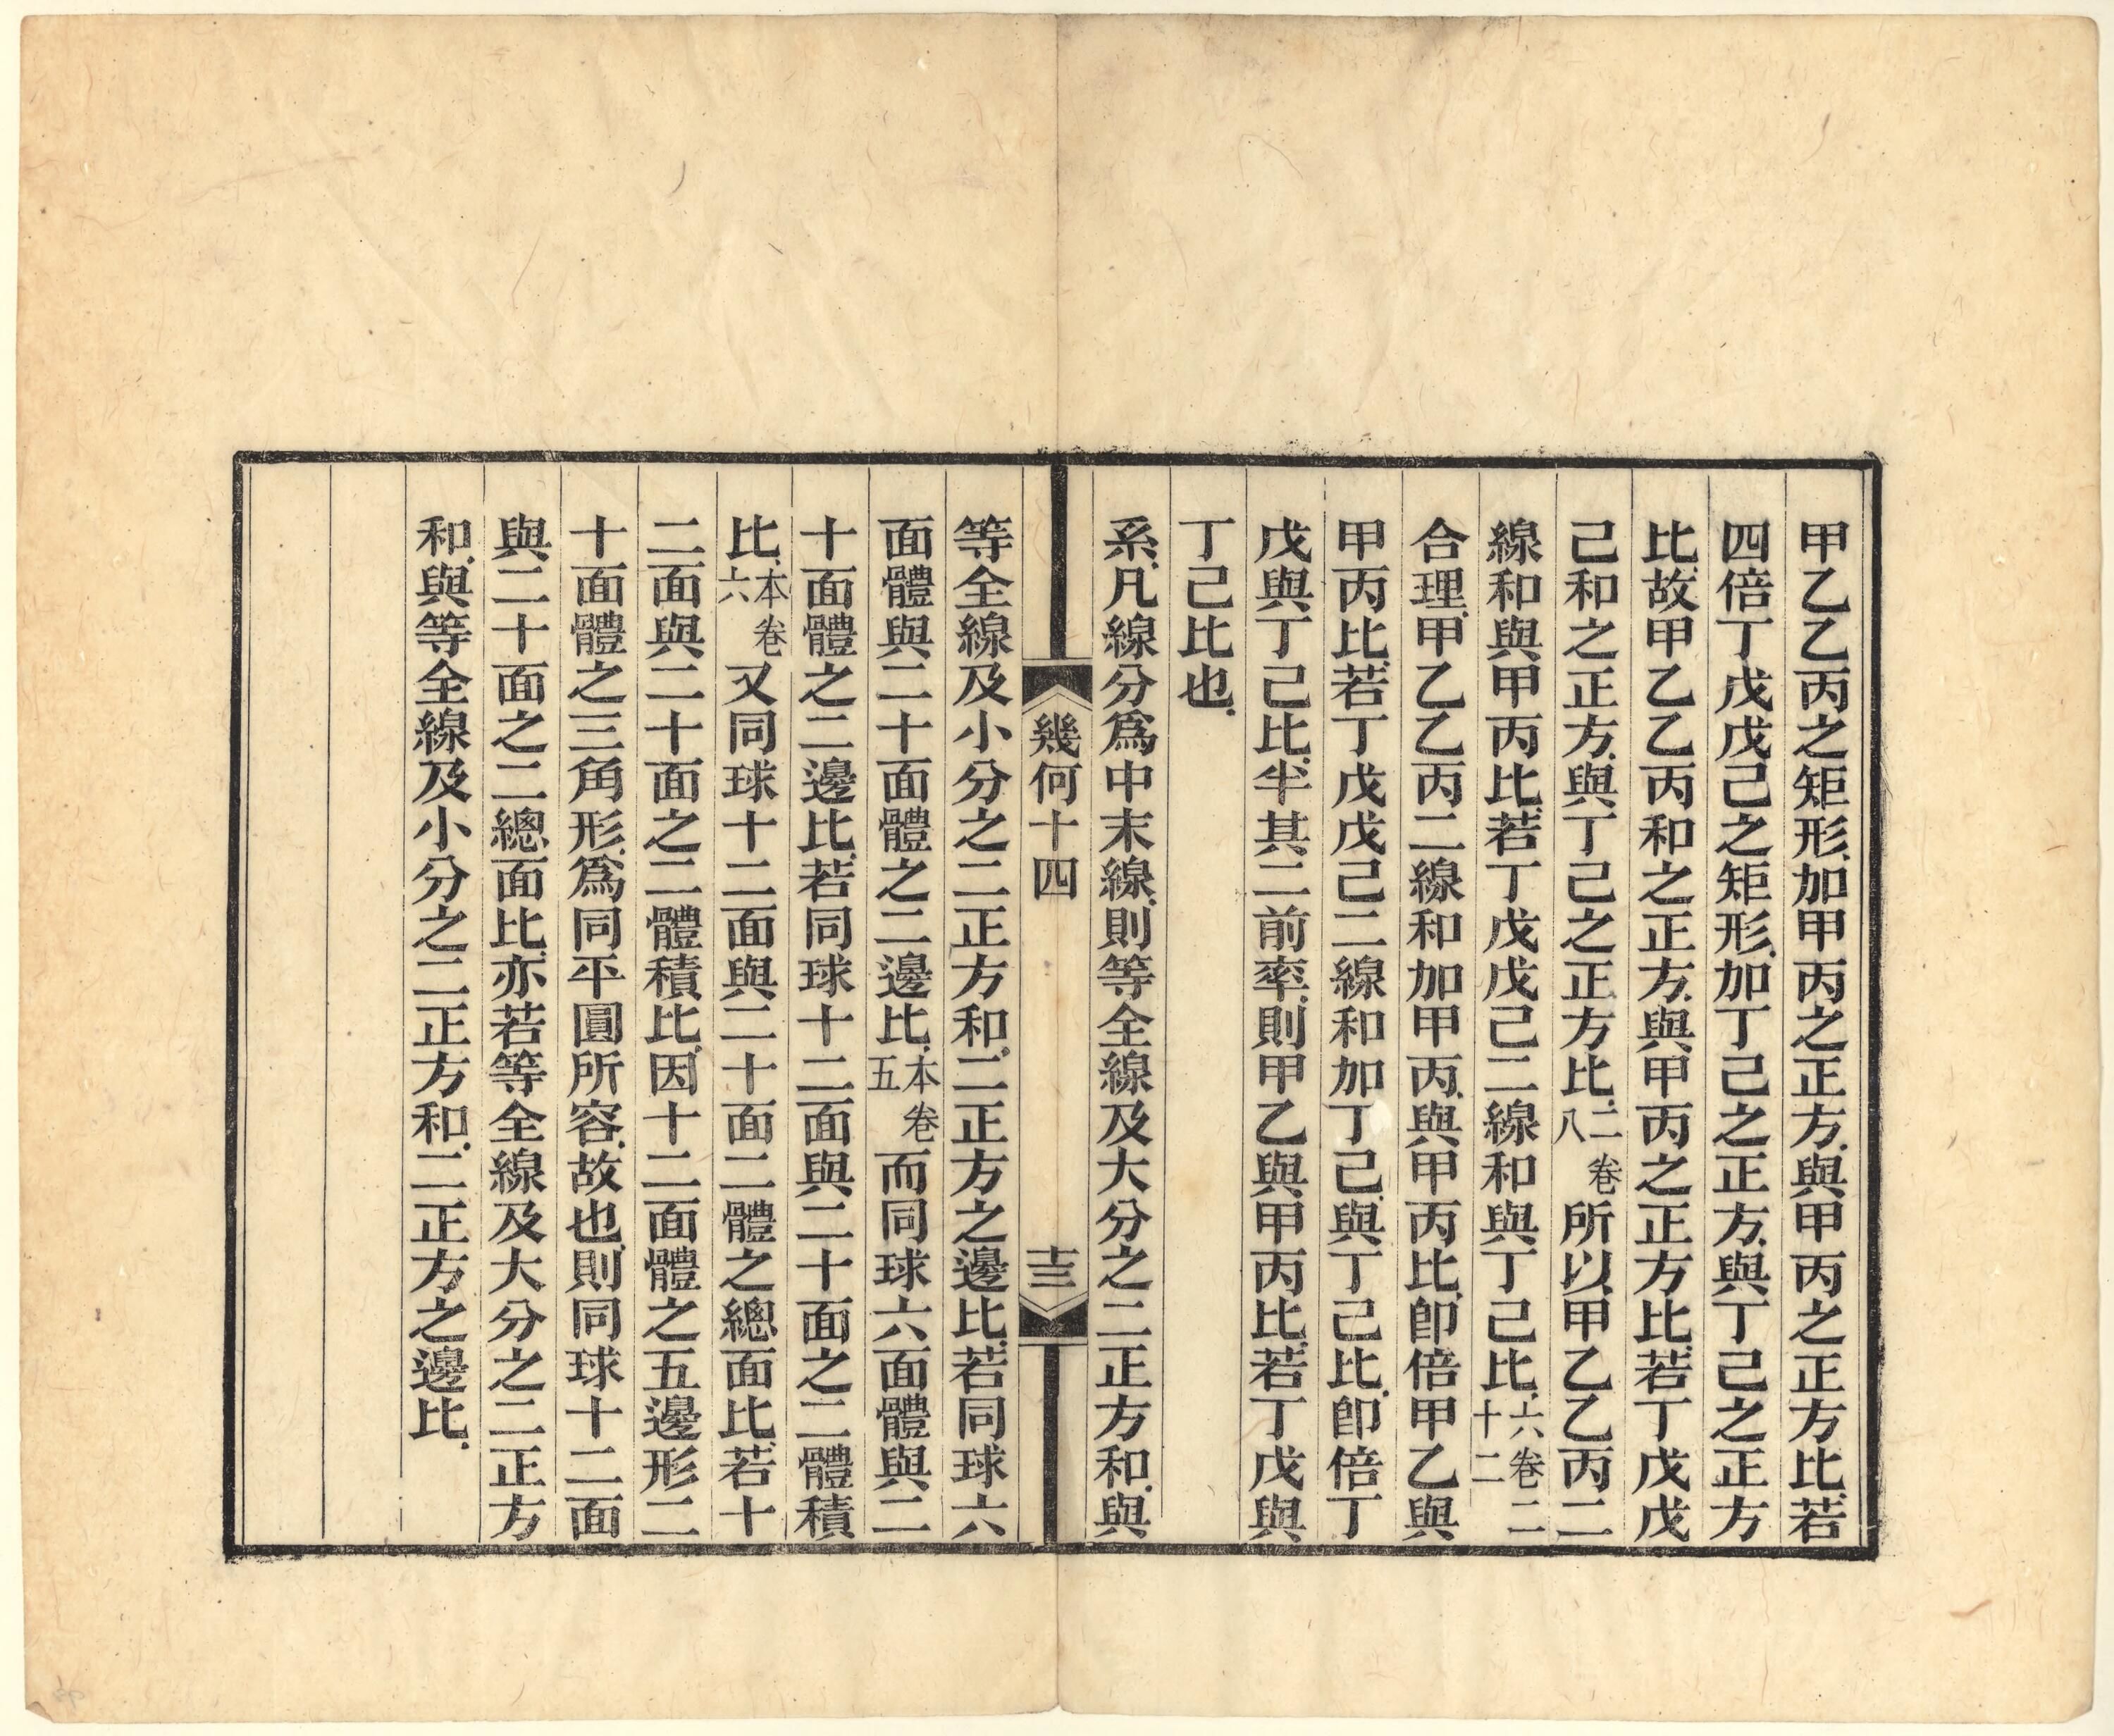 甲乙乙丙之矩形、加甲丙之正方、與甲丙之正方比、若
四倍丁戊戊己之矩形、加丁己之正方、與丁己之正方
比、故甲乙乙丙和之正方、與甲丙之正方比、若丁戊戊
己和之正方、與丁己之正方比、二卷八所以甲乙乙丙二
線和與甲丙比、若丁戊戊己二線和與丁己比、六卷二十二
合理、甲乙乙丙二線和加甲丙、與甲丙比、卽倍甲乙與
甲丙比、若丁戊戊己二線和加丁己、與丁己比、卽倍丁
戊與丁己比、半其二前率、則甲乙與甲丙比、若丁戊與
丁己比也、
系、凡線分爲中末線、則等全線及大分之二正方和、與
幾何十四
十三
等全線及小分之二正方和、二正方之邊比、若同球六
面體與二十面體之二邊比、本卷五而同球六面體與二
十面體之二邊比、若同球十二面與二十面之二體積
比、本卷六又同球十二面與二十面二體之總面比、若十
二面與二十面之二體積比、因十二面體之五邊形二
十面體之三角形、爲同平圓所容、故也、則同球十二面
與二十面之二總面比、亦若等全線及大分之二正方
和、與等全線及小分之二正方和、二正方之邊比、